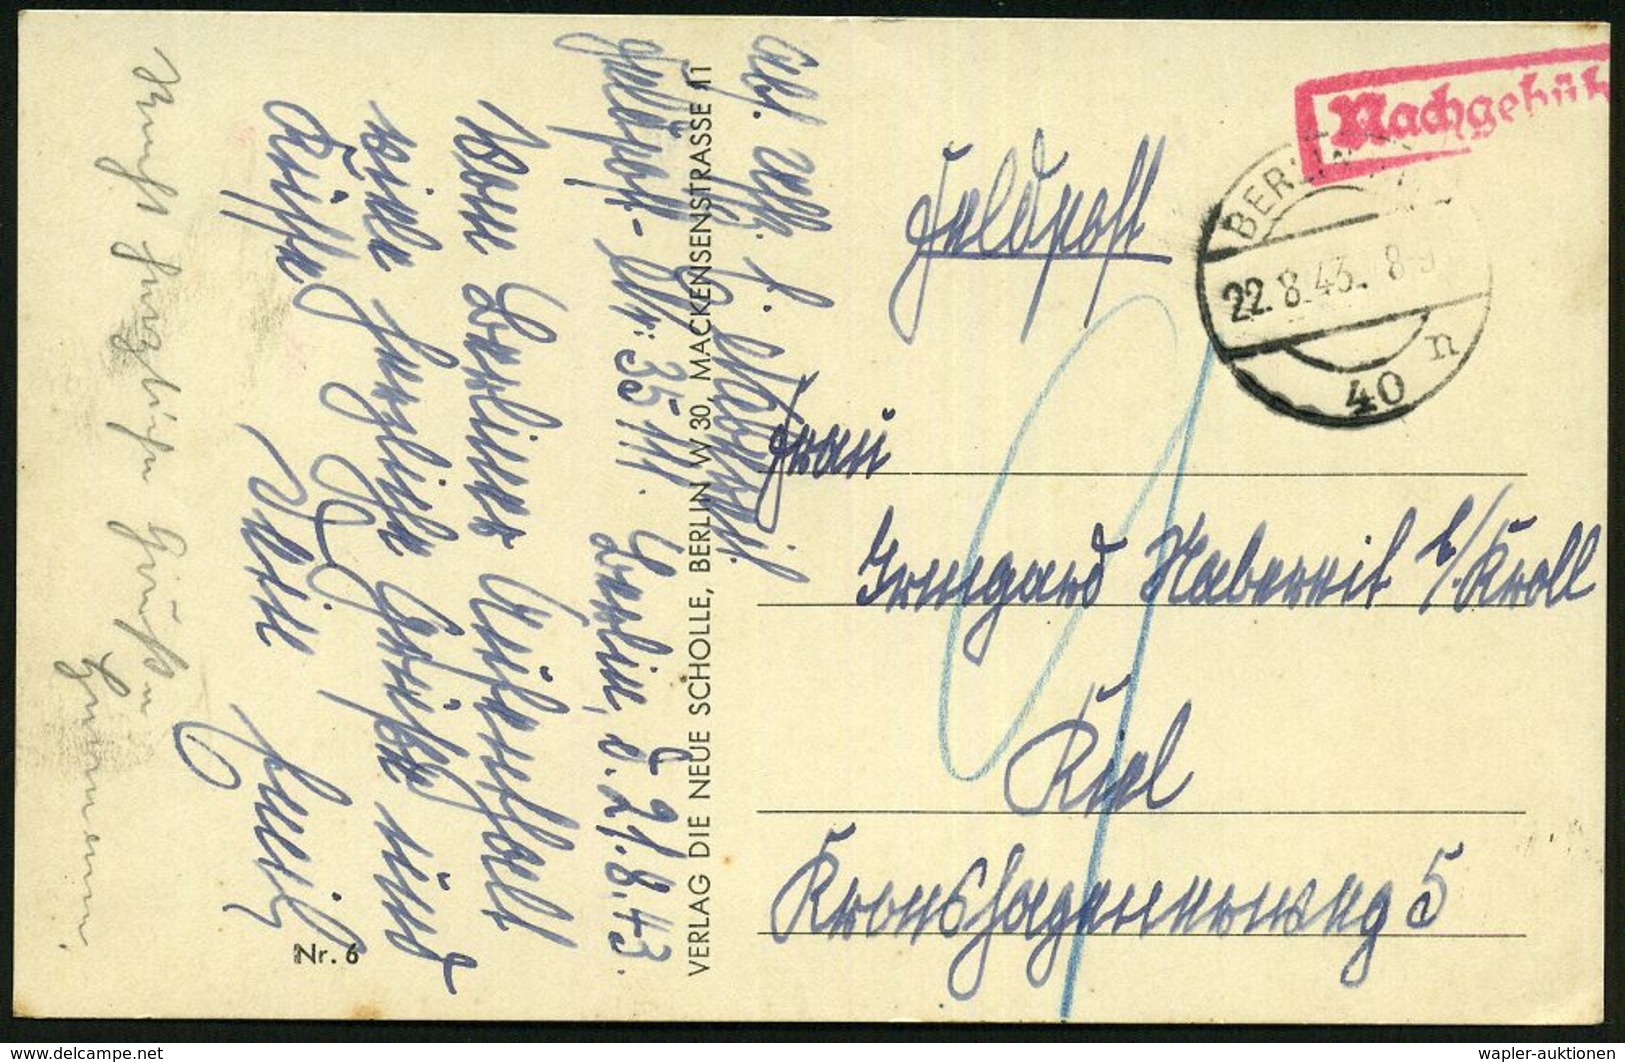 Nachgebüh
BERLIN
22.8.43. 8-9
40
n
Feldpost
Frau
Irmgard Nabereit b/Kroll
Kiel
Kronshagenerweg 5
9
Abs. Uffz. F. Nabereit
Feldpost-Nr: 35111.
Berlin, d. 21.8.43.
Vom Berliner Aufenthalt
viele herzliche Grüße und
Küsse
Dein
Heinz
herzliche Grüße
VERLAG DIE NEUE SCHOLLE, BERLIN W 30, MACKENSENSTRASSE 11
Nr. 6
wapler-auktionen